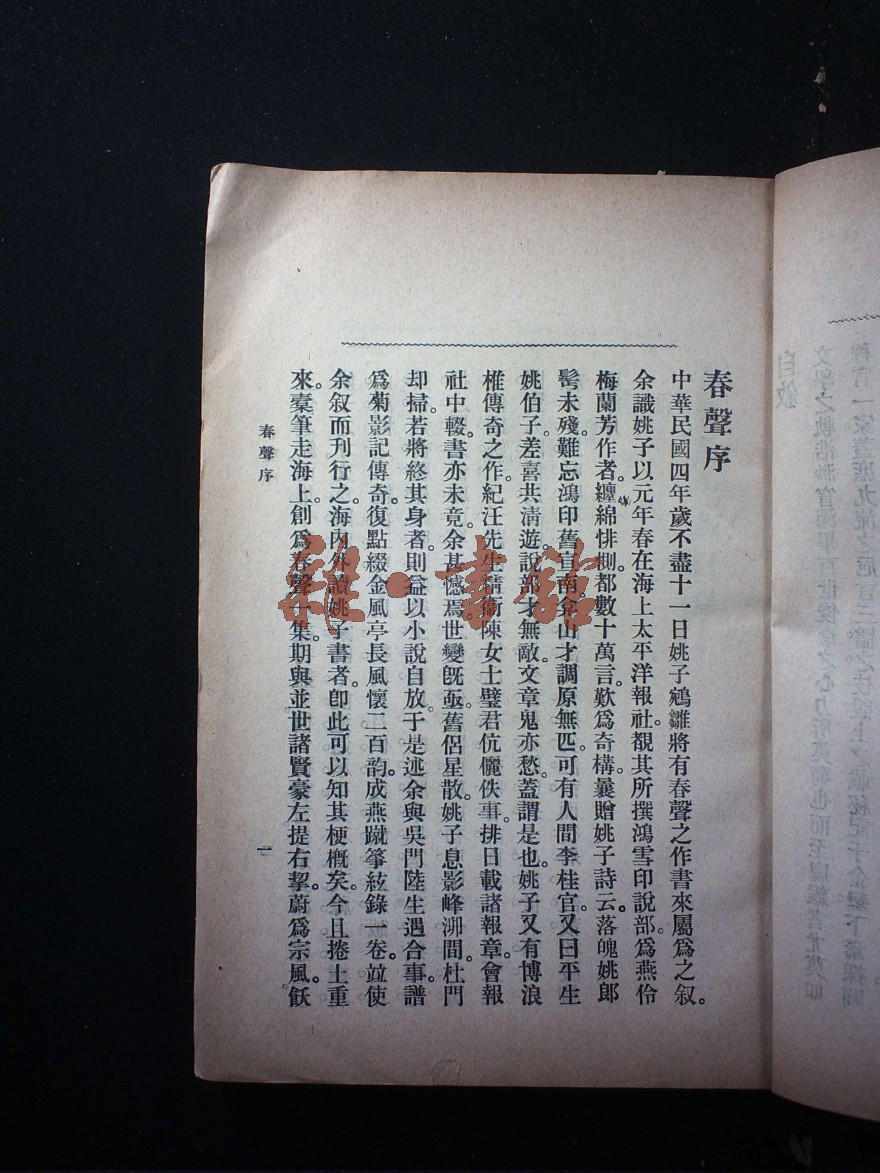 春聲序
中華民國四年歲不盡十一日姚子鵷雛將有春聲之作書來屬爲之叙。
余識姚子以元年春在海上太平洋報社。覩其所撰鴻雪印說部。爲燕伶
梅蘭芳作者。纏綿悱惻。都數十萬言。歎爲奇構。曩贈姚子詩云。落魄姚郎
髩未殘。難忘鴻印舊宣南。余山才調原無匹。可有人間李桂官。又曰平生
姚伯子。差喜共清遊。說部才無敵。文章鬼亦愁。蓋謂是也。姚子又有博浪
椎傳奇之作。紀汪先生精衛陳女士璧君伉儷佚事。排日載諸報章。會報
社中輟。書亦未竟。余甚憾焉。世變旣亟。舊侶星散。姚子息影峰泖間。杜門
却掃。若將終其身者。則益以小說自放。于是述余與吳門陸生遇合事。譜
爲菊影記傳奇。復點綴金風亭長風懷二百韵。成燕蹴箏絃錄一卷。竝使
余叙而刊行之。海內外讀姚子書者。卽此可以知其梗概矣。今且捲土重
來。槖筆走海上。創爲春聲一集。期與並世諸賢豪左提右挈。蔚爲宗風。飫
春聲序
一
雜·書館
自敘